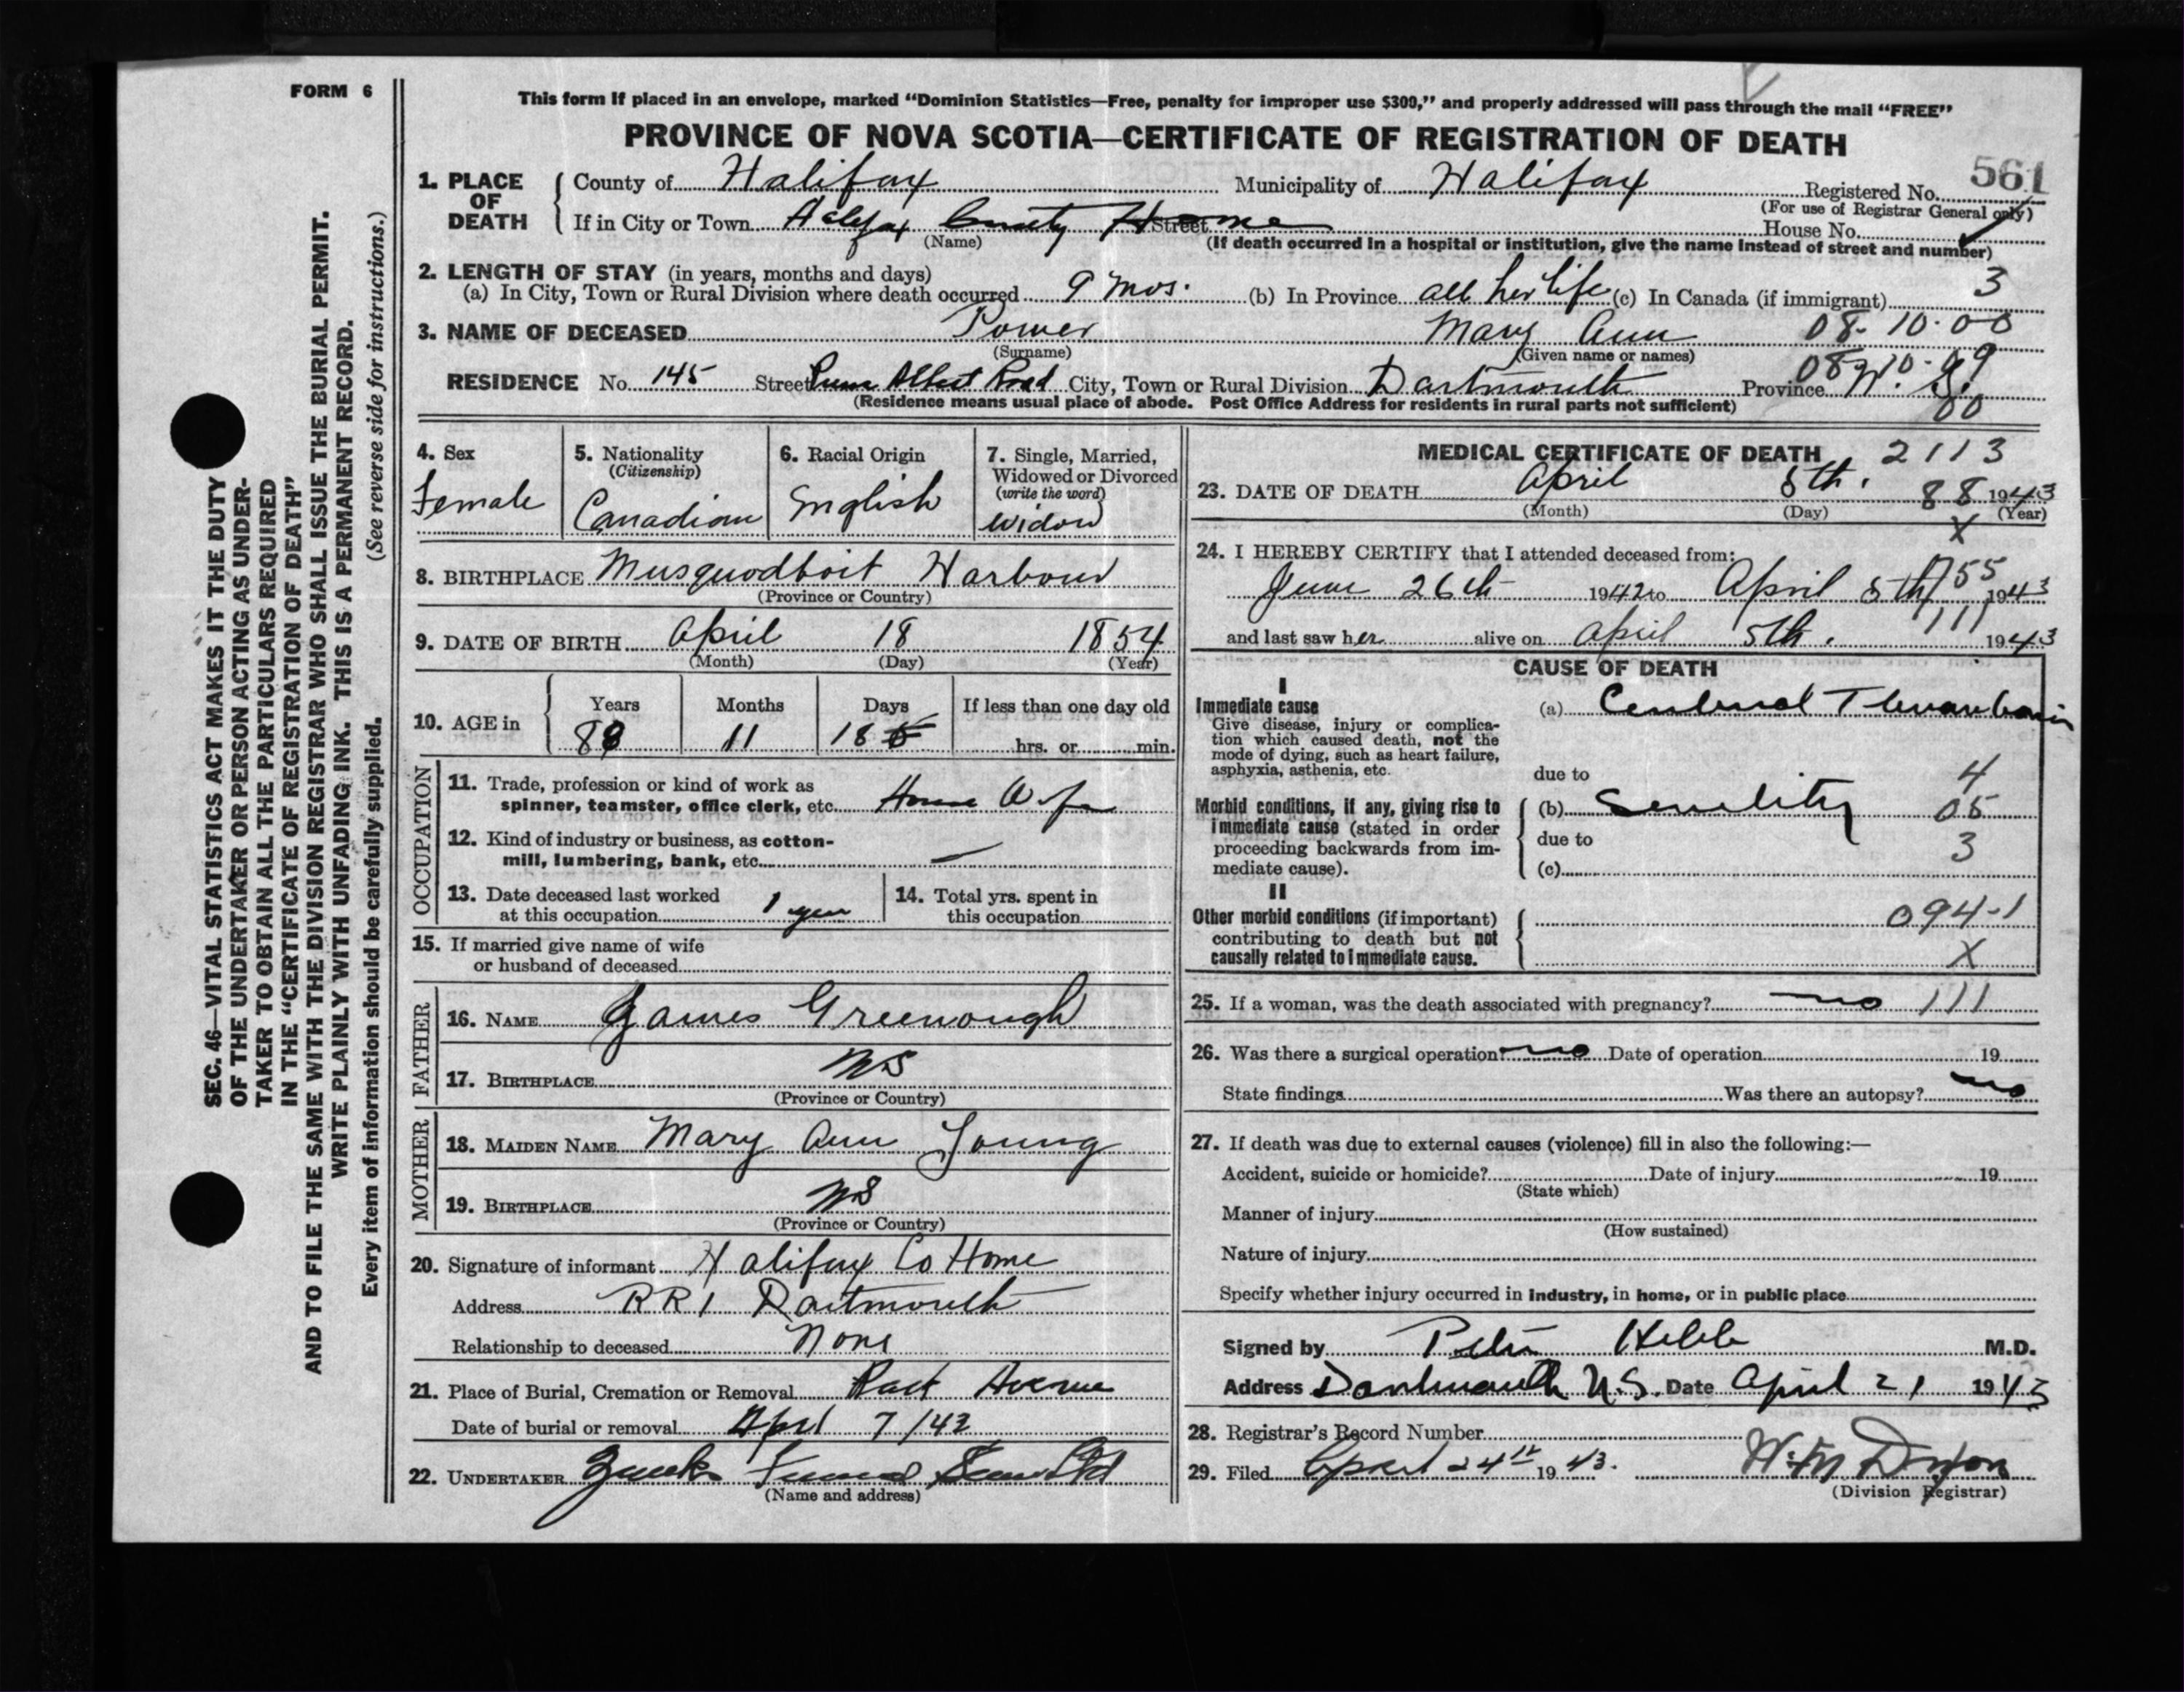 FORM 6
This form if placed in an envelope, marked “Dominion Statistics—Free, penalty for improper use $300,” and properly addressed will pass through the mail “FREE”
PROVINCE OF NOVA SCOTIA—CERTIFICATE OF REGISTRATION OF DEATH
561
1. PLACE OF DEATH County of Halifax Municipality of Halifax Registered No.
(For use of Registrar General only)
If in City or Town Halifax County Home Street House No.
(Name) (If death occurred in a hospital or institution, give the name instead of street and number)
2. LENGTH OF STAY (in years, months and days)
(a) In City, Town or Rural Division where death occurred 9 mos. (b) In Province all her life (c) In Canada (if immigrant) 3
3. NAME OF DECEASED Power Mary Ann 08-10-00
(Surname) (Given name or names)
08 10-09
RESIDENCE No. 145 Street Albert Road City, Town or Rural Division Dartmouth Province N. S.
(Residence means usual place of abode. Post Office Address for residents in rural parts not sufficient) 00
4. Sex Female
5. Nationality (Citizenship) Canadian
6. Racial Origin English
7. Single, Married, Widowed or Divorced (write the word) widow
8. BIRTHPLACE Musquodboit Harbour
(Province or Country)
9. DATE OF BIRTH April 18 1854
(Month) (Day) (Year)
10. AGE in Years 88 Months 11 Days 18 If less than one day old hrs. or min.
OCCUPATION
11. Trade, profession or kind of work as
spinner, teamster, office clerk, etc. House Wife
12. Kind of industry or business, as cotton-
mill, lumbering, bank, etc. —
13. Date deceased last worked
at this occupation 1 year
14. Total yrs. spent in
this occupation
15. If married give name of wife
or husband of deceased
FATHER
16. NAME James Greenough
17. BIRTHPLACE NS
(Province or Country)
MOTHER
18. MAIDEN NAME Mary Ann Young
19. BIRTHPLACE NS
(Province or Country)
20. Signature of informant Halifax Co Home
Address RR1 Dartmouth
Relationship to deceased None
21. Place of Burial, Cremation or Removal Avenue
Date of burial or removal April 7/43
22. UNDERTAKER Ltd
(Name and address)
MEDICAL CERTIFICATE OF DEATH 2113
23. DATE OF DEATH April 5th. 88 1943
(Month) (Day) (Year)
X
24. I HEREBY CERTIFY that I attended deceased from:
June 26th 1942 to April 5th 1943
and last saw her alive on April 5th. 111 1943
CAUSE OF DEATH
I
Immediate cause
Give disease, injury or complica-
tion which caused death, not the
mode of dying, such as heart failure,
asphyxia, asthenia, etc.
(a) Cerebral Thrombosis
due to 4
Morbid conditions, if any, giving rise to
immediate cause (stated in order
proceeding backwards from im-
mediate cause).
(b) Senility 05
due to 3
(c)
II
Other morbid conditions (if important)
contributing to death but not
causally related to immediate cause.
094-1
X
25. If a woman, was the death associated with pregnancy? no 111
26. Was there a surgical operation? no Date of operation 19
State findings Was there an autopsy? no
27. If death was due to external causes (violence) fill in also the following:—
Accident, suicide or homicide? Date of injury 19
(State which)
Manner of injury
(How sustained)
Nature of injury
Specify whether injury occurred in industry, in home, or in public place
Signed by M.D.
Address Dartmouth N.S. Date April 21 1943
28. Registrar's Record Number
29. Filed April 24th 1943.
(Division Registrar)
SEC. 46—VITAL STATISTICS ACT MAKES IT THE DUTY
OF THE UNDERTAKER OR PERSON ACTING AS UNDER-
TAKER TO OBTAIN ALL THE PARTICULARS REQUIRED
IN THE “CERTIFICATE OF REGISTRATION OF DEATH”
AND TO FILE THE SAME WITH THE DIVISION REGISTRAR WHO SHALL ISSUE THE BURIAL PERMIT.
WRITE PLAINLY WITH UNFADING INK. THIS IS A PERMANENT RECORD.
Every item of information should be carefully supplied. (See reverse side for instructions.)